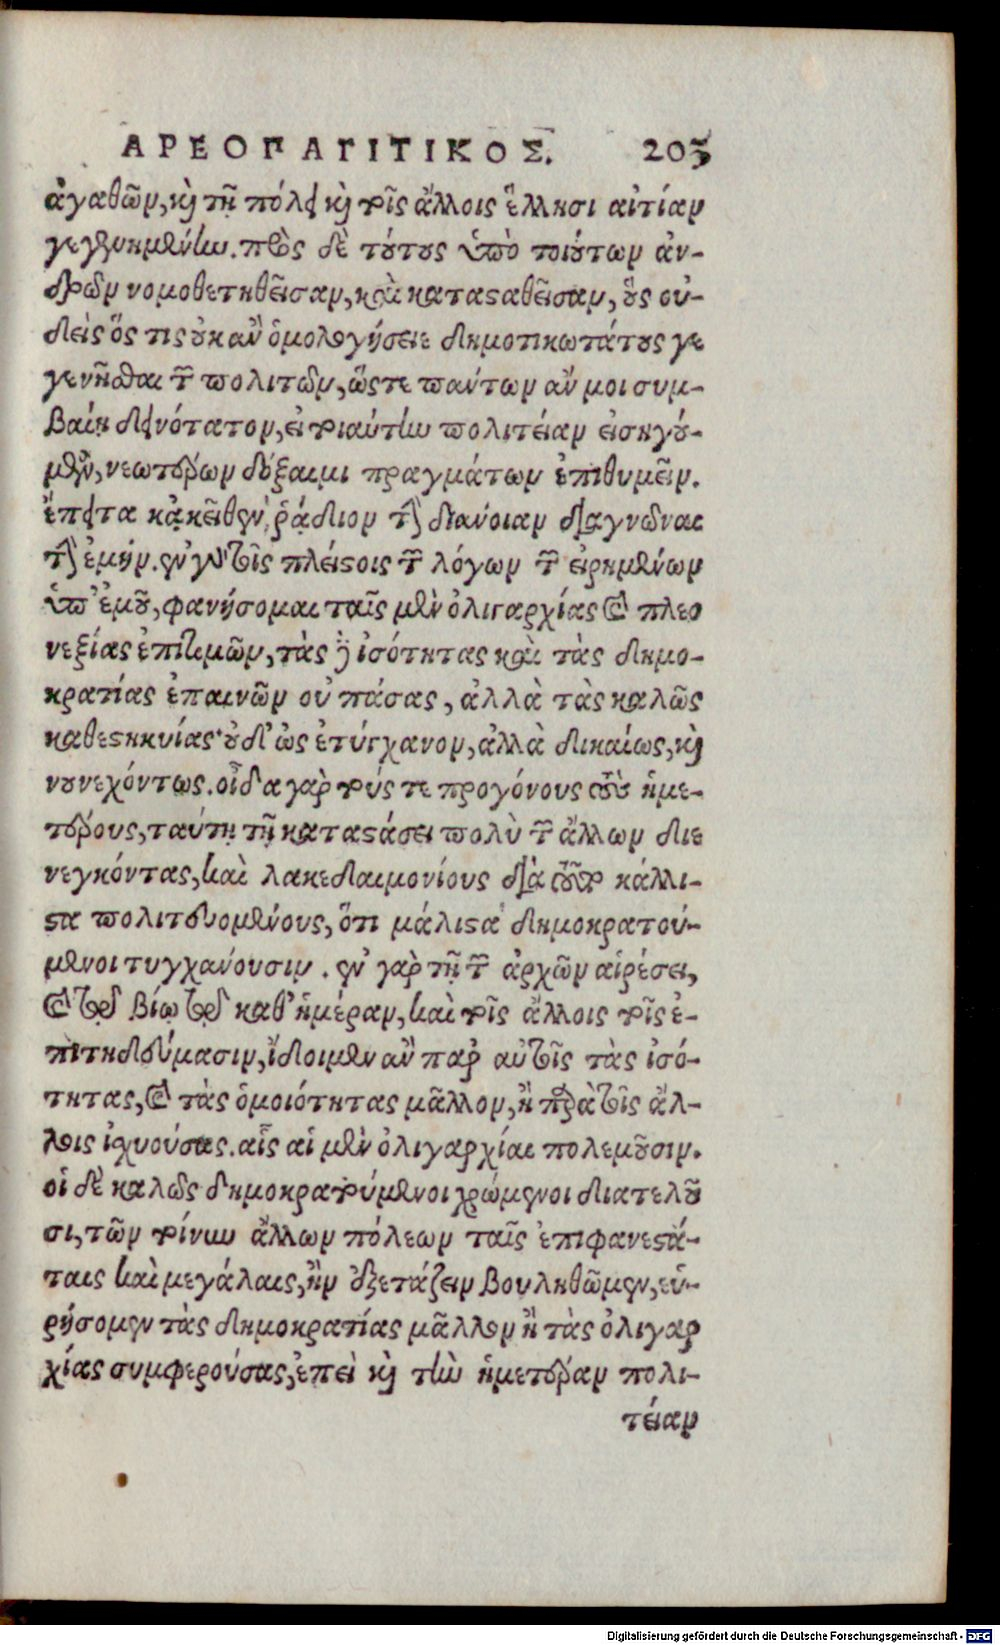 ΑΡΕΟΠΑΓΙΤΙΚΟΣ. 205
ἀγαθῶν, καὶ τῇ πόλει καὶ τοῖς ἄλλοις ἕλλησι αἰτίαν
γεγενημένην. πρὸς δὲ τούτοις ὑπὸ τοιούτων ἀν-
δρῶν νομοθετηθεῖσαν, καὶ καταςαθεῖσαν, οὓς οὐ-
δεὶς ὅς τις οὐκ ἂν ὁμολογήσειε δημοτικωτάτους γε
γενῆσθαι τῶν πολιτῶν, ὥςτε πάντων ἄν μοι συμ-
βαίη δεινότατον, εἰ τοιαύτην πολιτείαν εἰσηγού-
μενος, νεωτέρων δόξαιμι πραγμάτων ἐπιθυμεῖν.
ἔπειτα κᾀκεῖθεν ῥᾴδιον τὴν διάνοιαν διαγνῶναι
τὴν ἐμήν. ἐν γὰρ τοῖς πλείςοις τῶν λόγων τῶν εἰρημένων
ὑπ' ἐμοῦ, φανήσομαι ταῖς μὲν ὀλιγαρχίαις καὶ πλεο
νεξίαις ἐπιτιμῶν, τὰς δὲ ἰσότητας καὶ τὰς δημο-
κρατίας ἐπαινῶν οὐ πάσας, ἀλλὰ τὰς καλῶς
καθεςηκυίας· οὐδ' ὡς ἐτύγχανον, ἀλλὰ δικαίως, καὶ
νουνεχόντως. οἶδα γὰρ τούς τε προγόνους τοὺς ἡμε-
τέρους, ταύτῃ τῇ καταςάσει πολὺ τῶν ἄλλων διε
νεγκόντας, καὶ λακεδαιμονίους διὰ τοῦτο κάλλι-
ςα πολιτευομένους, ὅτι μάλιςα δημοκρατού-
μενοι τυγχάνουσιν. ἐν γὰρ τῇ τῶν ἀρχῶν αἱρέσει,
καὶ τῷ βίῳ τῷ καθ' ἡμέραν, καὶ τοῖς ἄλλοις τοῖς ἐ-
πιτηδεύμασιν, ἴδοιμεν ἂν παρ' αὐτοῖς τὰς ἰσό-
τητας, καὶ τὰς ὁμοιότητας μᾶλλον, ἢ παρὰ τοῖς ἄλ-
λοις ἰχυούσας. αἷς αἱ μὲν ὀλιγαρχίαι πολεμοῦσιν.
οἱ δὲ καλῶς δημοκρατούμενοι χρώμενοι διατελοῦ
σι, τῶν τοίνυν ἄλλων πόλεων ταῖς ἐπιφανεςά-
ταις καὶ μεγάλαις, ἢν ἐξετάζειν βουληθῶμεν, εὑ-
ρήσομεν τὰς δημοκρατίας μᾶλλον ἢ τὰς ὀλιγαρ
χίας συμφερούσας, ἐπεὶ καὶ τὴν ἡμετέραν πολι-
τείαν
Digitalisierung gefördert durch die Deutsche Forschungsgemeinschaft - DFG